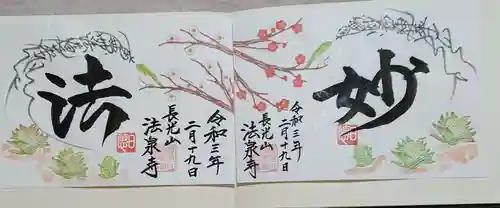 妙
令和三年
二月十九日
長光山
法泉寺
令和三年
二月十九日
長光山
法泉寺
法